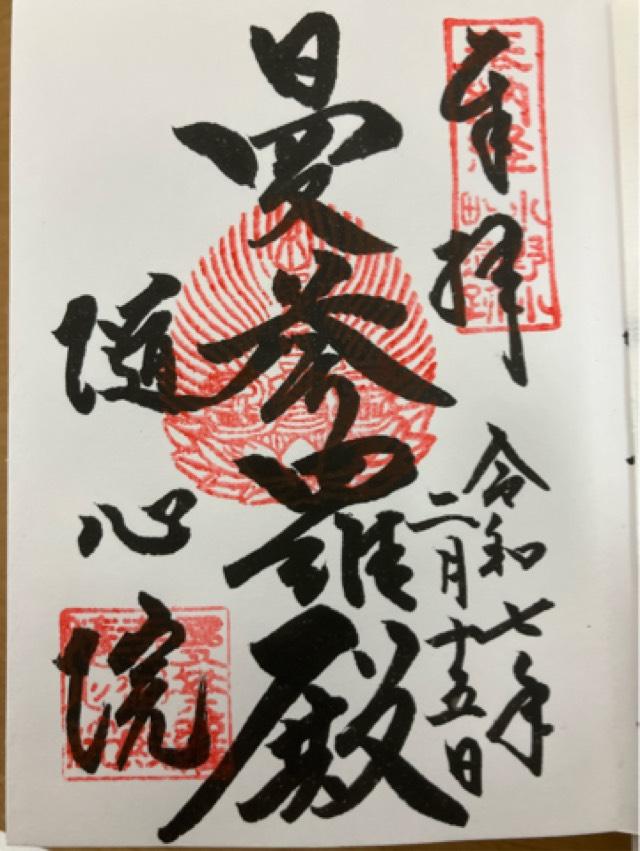 奉拝
令和七年
二月十五日
曼荼羅殿
随心院